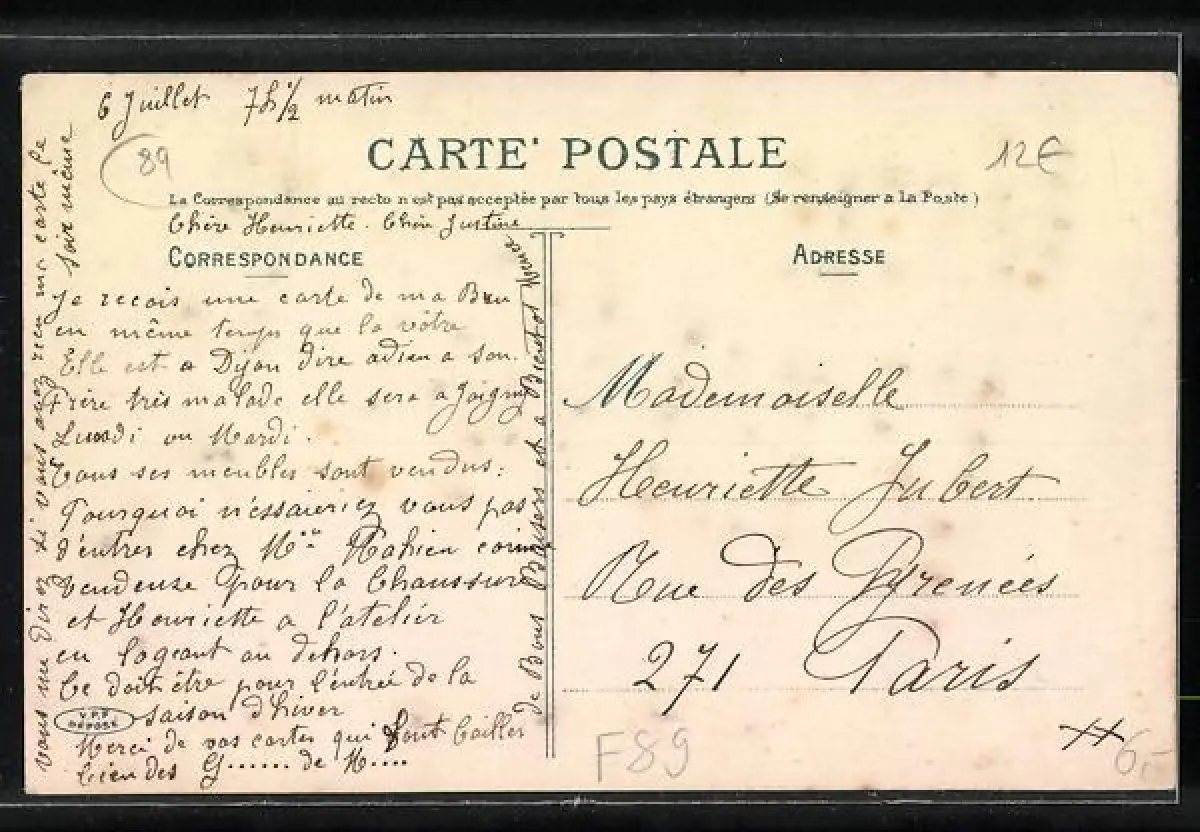 6 Juillet 7h 1/2 matin
89
CARTE POSTALE
12€
La Correspondance au recto n'est pas acceptée par tous les pays étrangers (Se renseigner a La Poste)
Chère Henriette. Chère Justine
CORRESPONDANCE
ADRESSE
Je recois une carte de ma
en même temps que la vôtre
Elle est a Dijon dire adieu a son
Frère très malade elle sera a Joigny
Lundi ou Mardi.
Tous ses meubles sont vendus:
Pourquoi n'éssaieriez vous pas
d'entrer chez comme
vendeuse pour la Chaussure
et Henriette a l'atelier
en logeant au dehors.
Ce doit être pour l'entrée de la
saison d'hiver
Merci de vos cartes qui font
bien des G...... de N....
V.P.F
DÉPOSÉ
vous me direz si vous avez rien ma carte le
soir même
de Bons Baisers et a Bientot
Mademoiselle
Henriette Jubert
Rue des Pyrenées
271 Paris
F89
6,-